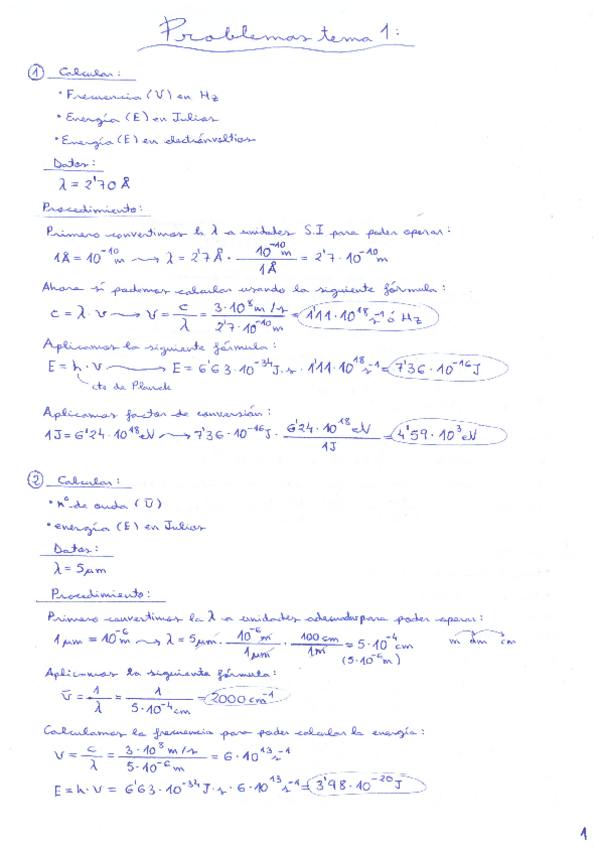 Problemas tema 1:
① Calcular:
• Frecuencia (ν) en Hz
• Energía (E) en Julios
• Energía (E) en electrónvoltios
Datos:
λ = 2'70 Å
Procedimiento:
Primero convertimos la λ a unidades S.I para poder operar:
1Å = 10⁻¹⁰m ⟿ λ = 2'7Å · 10⁻¹⁰m / 1Å = 2'7·10⁻¹⁰m
Ahora sí podemos calcular usando la siguiente fórmula:
c = λ·ν ⟶ ν = c/λ = 3·10⁸m/s / 2'7·10⁻¹⁰m = 1'11·10¹⁸s⁻¹ ó Hz
Aplicamos la siguiente fórmula:
E = h·ν ⟶ E = 6'63·10⁻³⁴J·s · 1'11·10¹⁸s⁻¹ = 7'36·10⁻¹⁶J
cte de Planck
Aplicamos factor de conversión:
1J = 6'24·10¹⁸eV ⟿ 7'36·10⁻¹⁶J · 6'24·10¹⁸eV / 1J = 4'59·10³eV
② Calcular:
• nº de onda (ν̄)
• energía (E) en Julios
Datos:
λ = 5μm
Procedimiento:
Primero convertimos la λ a unidades adecuadas para poder operar:
1μm = 10⁻⁶m ⟿ λ = 5μm · 10⁻⁶m / 1μm · 100cm / 1m = 5·10⁻⁴cm m dm cm
(5·10⁻⁶m)
Aplicamos la siguiente fórmula:
ν̄ = 1/λ = 1 / 5·10⁻⁴cm = 2000cm⁻¹
Calculamos la frecuencia para poder calcular la energía:
ν = c/λ = 3·10⁸m/s / 5·10⁻⁶m = 6·10¹³s⁻¹
E = h·ν = 6'63·10⁻³⁴J·s · 6·10¹³s⁻¹ = 3'98·10⁻²⁰J
1